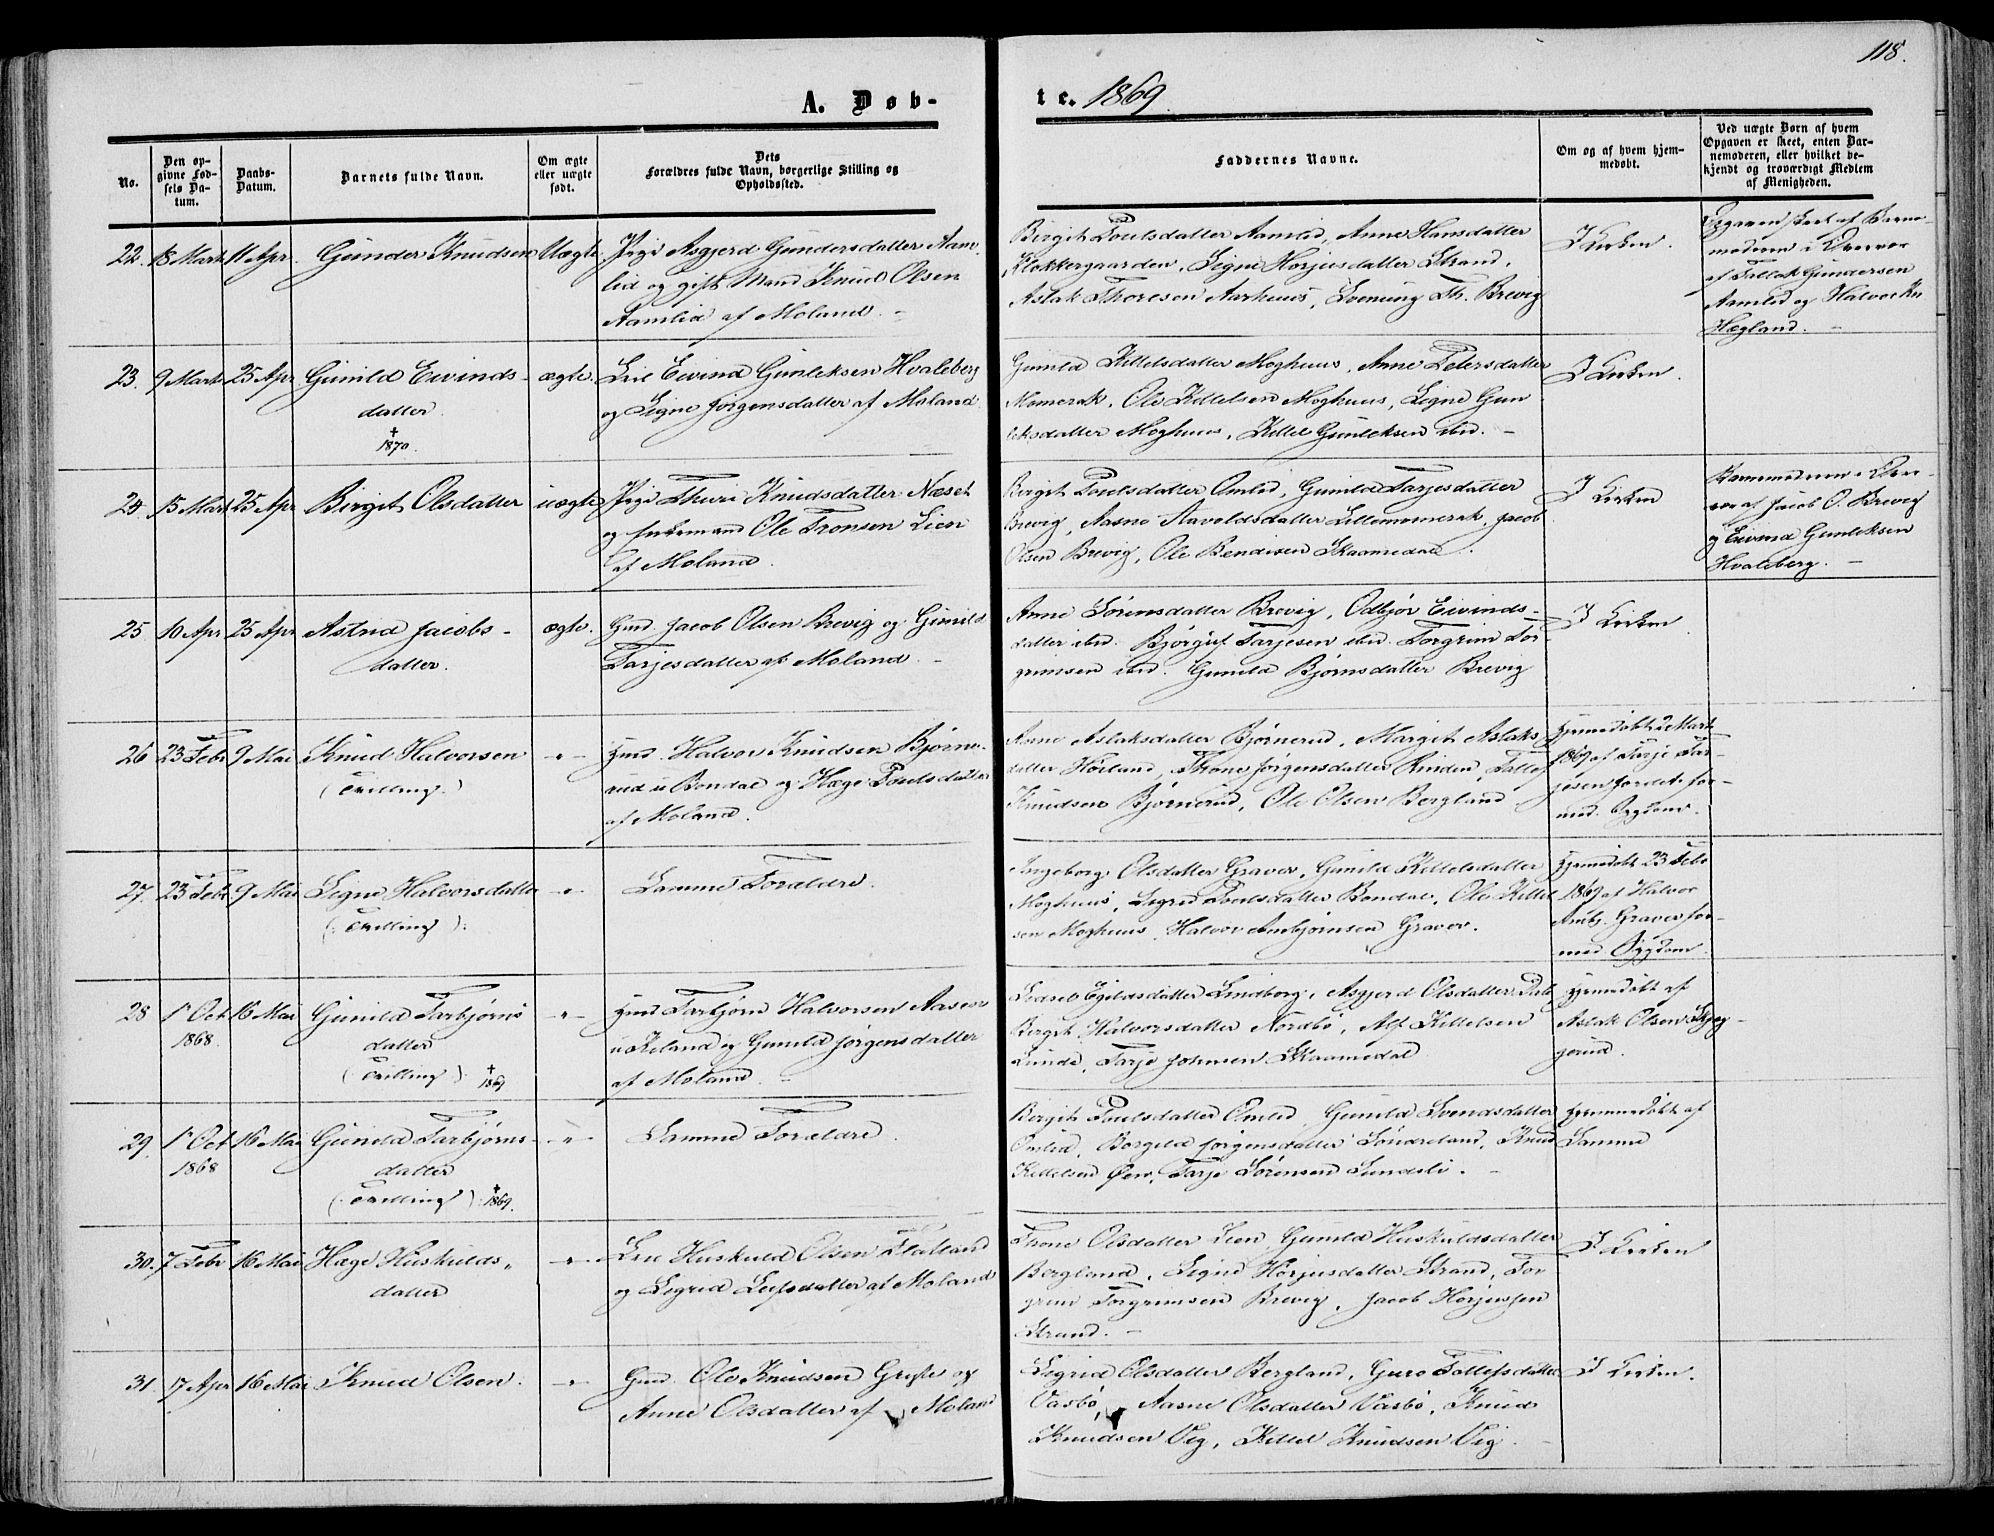 118.
A. Døb-
te. 1869
No.
Den op-
givne Fød-
sels Da-
tum.
Daabs-
Datum.
Barnets fulde Navn.
Om ægte
eller uægte
født.
Dets
Forældres fulde Navn, borgerlige Stilling og
Opholdssted.
Faddernes Navne.
Om og af hvem hjem-
medøbt.
Ved uægte Børn af hvem
Opgaven er skeet, enten Bar-
nemoderen, eller hvilket be-
kjendt og troværdigt Medlem
af Menigheden.
22. 18 Marts 11 Apr. Gunder Knudsen Uægte
Pige Asgjerd Gundersdatter Aam-
lid og gift Mand Knud Olsen
Aamlid af Moland.
Birgit Poulsdatter Aamlid, Anne Hansdatter
Klokkergaarden, Signe Horjusdatter Strand,
Aslak Thoresen Aarhuus, Svenung Th. Brevig
I Kirken.
Opgaven skeet af Barne-
moderen i Overvær
af Tallek Gundersen
Aamlid og Halvor
Hægland.
23. 9 Marts 25 Apr Gunild Eivinds-
datter
† 1870.
ægte.
Lei Eivind Gunleksen Hvaleberg
og Signe Jørgensdatter af Moland
Gunild Kittelsdatter Moghuus, Anne Petersdatter
Momerak, Ole Kittelsen Moghuus, Signe Gun
leksdatter Moghuus, Kittel Gunleksen ibid.
I Kirken.
24 15 Marts 25 Apr Birgit Olsdatter uægte
Pige Thuri Knudsdatter Næset
og Enkemand Ole Tronsen Lien
af Moland.
Bergit Poulsdatter Omlid, Gunild Tarjesdatter
Brevig, Aasne Aavoldsdatter Lillemomerak, Jacob
Olsen Brevig, Ole Bendixen Skaamedal.
I Kirken
Barnemoderen i Over-
vær af Jacob O. Brevig
og Eivind Gunleksen
Hvaleberg.
25 10 Apr 25 Apr Astrid Jacobs-
datter.
ægte.
Gmd. Jacob Olsen Brevig og Gunild
Tarjesdatter af Moland.
Anne Sørensdatter Brevig, Odbjør Eivinds-
datter ibid. Bjørguf Tarjesen ibid. Torgrim Tor-
grimsen ibid. Gunild Bjørnsdatter Brevig
I Kirken
26 23 Febr 9 Mai Knud Halvorsen
(Tvilling)
-"-
Hmd. Halvor Knudsen Bjørne-
rud u. Bondal og Hæge Poulsdatter
af Moland.
Anne Aslaksdatter Bjørnerud, Margit Aslaks
datter Høiland, Thone Jørgensdatter Rinden, Tallef
Knudsen Bjørnerud, Ole Olsen Bergland
Hjemmedøbt 2 Marts
1869 af Tarje Tar-
jesen
27. 23 Febr. 9 Mai Signe Halvorsdatter
(: Tvilling :)
-"-
Samme Forældre.
Ingeborg Olsdatter Graver, Gunild Kittelsdatter
Moghuus, Sigrid Poulsdatter Bondal, Ole Kittel
sen Moghuus, Halvor Anbjørnsen Graver.
Hjemmedøbt 23 Febr
1869 af Halvor
Anbj. Graver for-
med. Sygdom
28 1 Oct 16 Mai Gunild Tarbjørns
1868.
datter
(Tvilling) † 1869
-"-
Hmd Tarbjørn Halvorsen Aasen
u. Kiland og Gunild Jørgensdatter
af Moland.
Sidsel Egildsdatter Lindborg, Asgjerd Olsdatter
Bergit Halvorsdatter Nordbø, Alf Kittelsen
Lunde, Tarje Johnsen Skaamedal
Hjemmedøbt af
Aslak Olsen Skjeg-
gerud.
29. 1 Oct 16 Mai Gunild Tarbjørns-
1868
datter
(: Tvilling) † 1869.
-"-
Samme Forældre.
Bergit Poulsdatter Omlid, Gunild Svendsdatter
Omlid, Borgild Jørgensdatter Søndreland, Knud
Kittelsen Øen, Tarje Sørensen Sundsli.
Hjemmedøbt af
Samme
30. 7 Febr 16 Mai Hæge Huskulds-
datter
-"-
Lei Huskuld Olsen Flatland
og Sigrid Leifsdatter af Moland
Thone Olsdatter Lien, Gunild Huskuldsdatter
Bergland, Signe Horjusdatter Strand, Tor
grim Torgrimsen Brevig, Jacob Horjussen
Strand.
I Kirken
31 17 Apr 16 Mai Knud Olsen.
-"-
Gmd. Ole Knudsen Grufse og
Anne Olsdatter af Moland
Sigrid Olsdatter Bergland, Guro Tallefsdatter
Vasbø, Aasne Olsdatter Vasbø, Knud
Knudsen Vig, Kittel Knudsen Vig.
I Kirken.